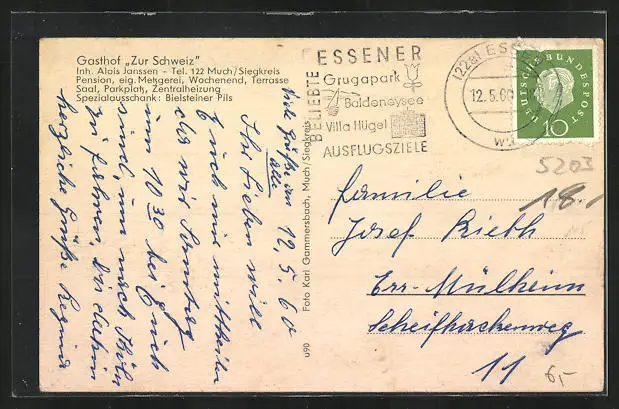 Gasthof „Zur Schweiz"
Inh. Alois Janssen - Tel. 122 Much/Siegkreis
Pension, eig. Metzgerei, Wochenend, Terrasse
Saal, Parkplatz, Zentralheizung
Spezialausschank: Bielsteiner Pils
BELIEBTE
ESSENER
Grugapark
Baldeneysee
Villa Hügel
AUSFLUGSZIELE
(22a) ESSEN
12.5.60
DEUTSCHE BUNDESPOST
10
5203
18.
12.5.60
Ihr Lieben will
Euch nur mitteilen
das wir Samstag
um 10 30 bei Euch
sind, um nach Köln
zu fahren, bis dahin
herzliche Grüße
Viele Grüße an
alle
Foto Karl Gammersbach, Much/Siegkreis
u90
Familie
Josef Rieth
Ess-Mülheim
11
6,-